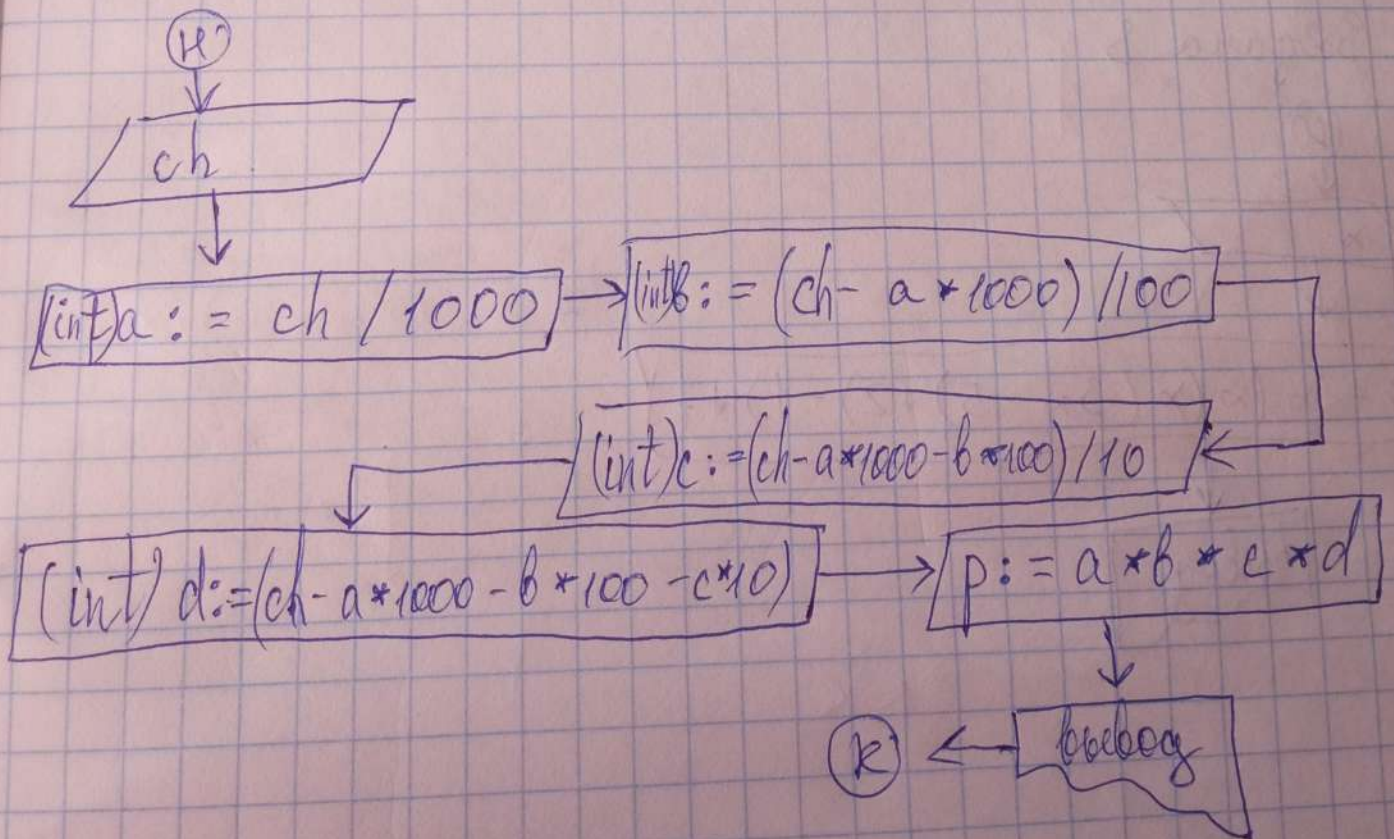 Н
ch
(int)a := ch / 1000
(int)b := (ch - a * 1000) / 100
(int)c := (ch - a * 1000 - b * 100) / 10
(int) d := (ch - a * 1000 - b * 100 - c * 10)
p := a * b * c * d
вывод
К